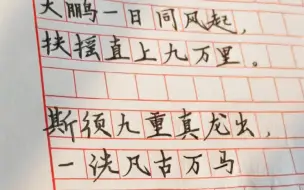 大鹏一日同风起，
扶摇直上九万里。
斯须九重真龙出，
一洗凡古万马